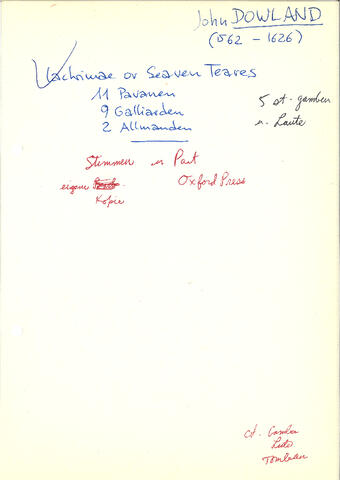 John DOWLAND
(1562 - 1626)
Lachrimae or Seaven Teares
11 Pavanen
9 Galliarden
2 Allmanden
5 st-gamben
u. Laute
Stimmen u Part
eigene
Kopie
Oxford Press
st. Gamba
Laute